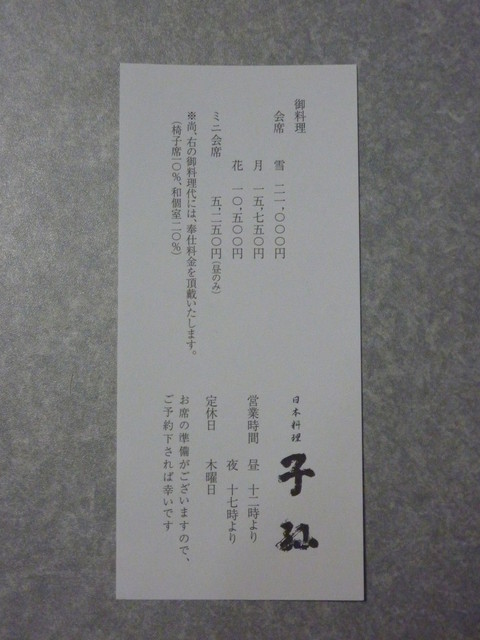 御料理
会席 雪 二一、〇〇〇円
月 一五、七五〇円
花 一〇、五〇〇円
ミニ会席 五、二五〇円(昼のみ)
※尚、右の御料理代には、奉仕料金を頂戴いたします。
(椅子席一〇%、和個室二〇%)
日本料理
子
営業時間 昼 十二時より
夜 十七時より
定休日 木曜日
お席の準備がございますので、
ご予約下されば幸いです